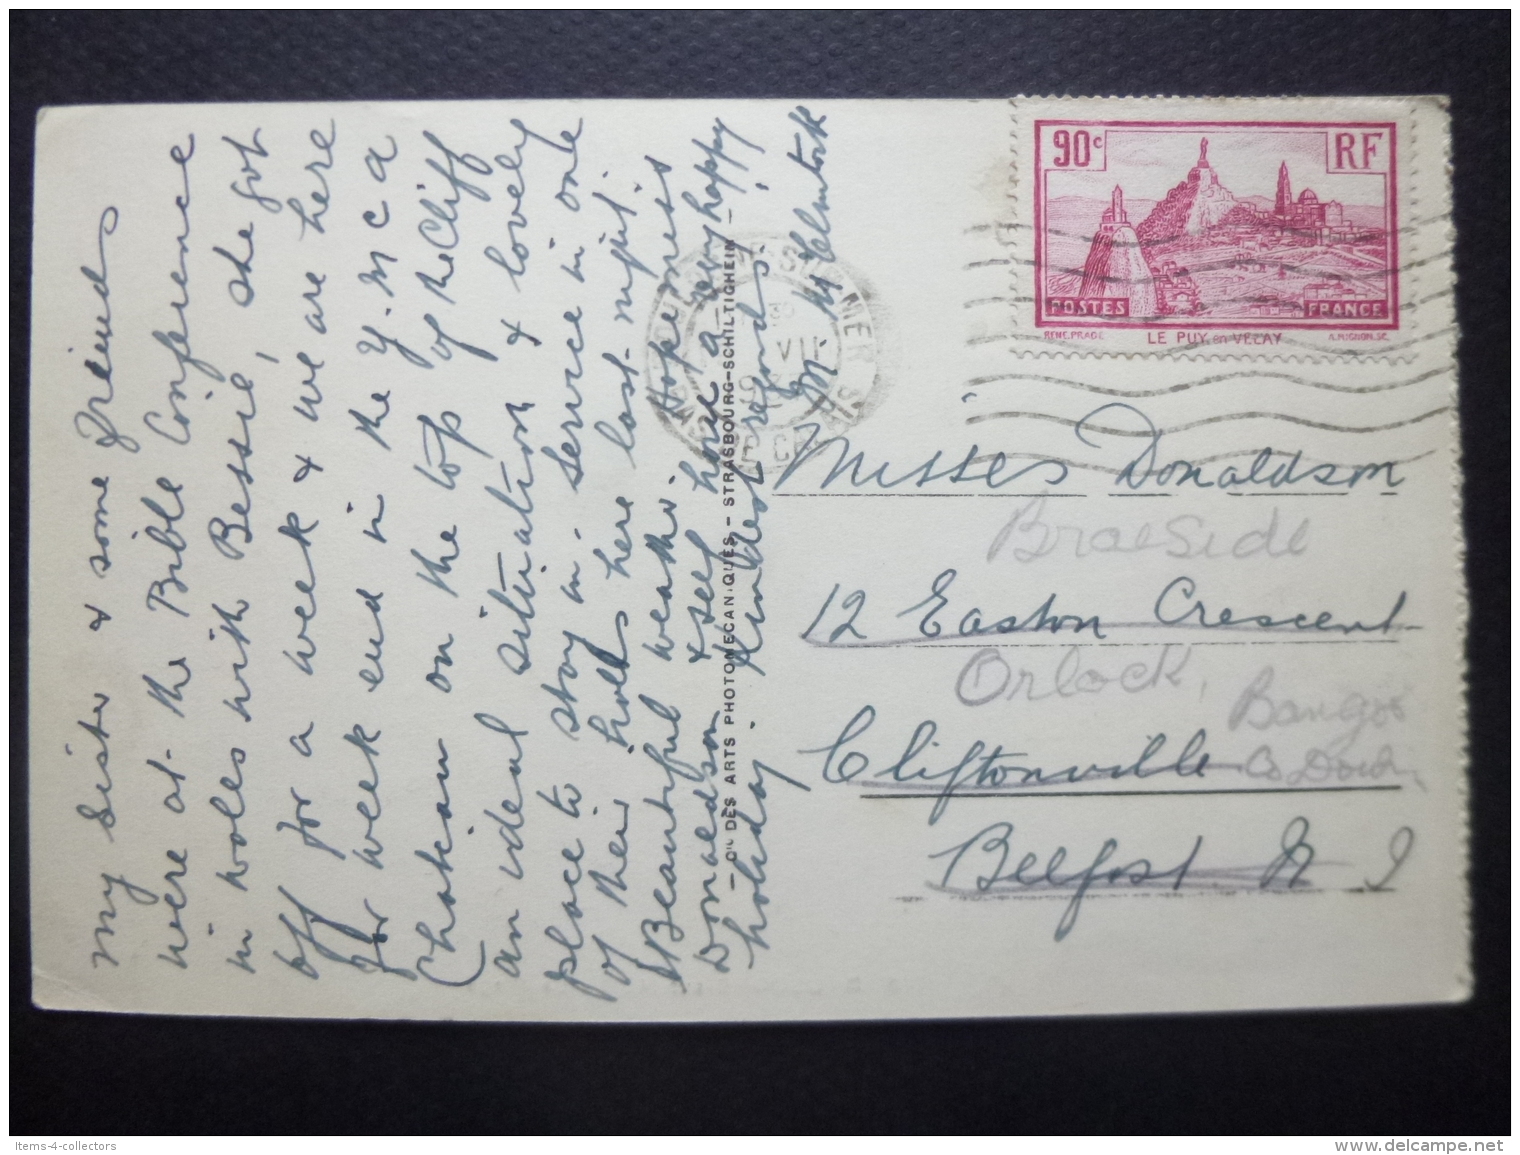 My Sister & some Friends
were at the Bible Conference
in woles with Bessie, she got
off for a week & we are here
for week end in the Y.M C A
on the top of the Cliff
an ideal situation & lovely
place to stay in. Service in one
of their here last night
Beautiful weather. Hope Miss
Donaldson & self have a very happy
holiday. Kindest regards.
M McClintock
— Cie DES ARTS PHOTOMECANIQUES — STRASBOURG-SCHILTIGHEIM —
BOULOGNE-SUR-MER
VII
PAS DE CALAIS
90c RF
POSTES FRANCE
RENE.PRADE LE PUY en VELAY A.MIGNON.SC
Misses Donaldson
BraeSide
12 Easton Crescent
Orlock,
Bangor
Cliftonville Co Down
Belfast. N I
Items-4-collectors
www.delcampe.net